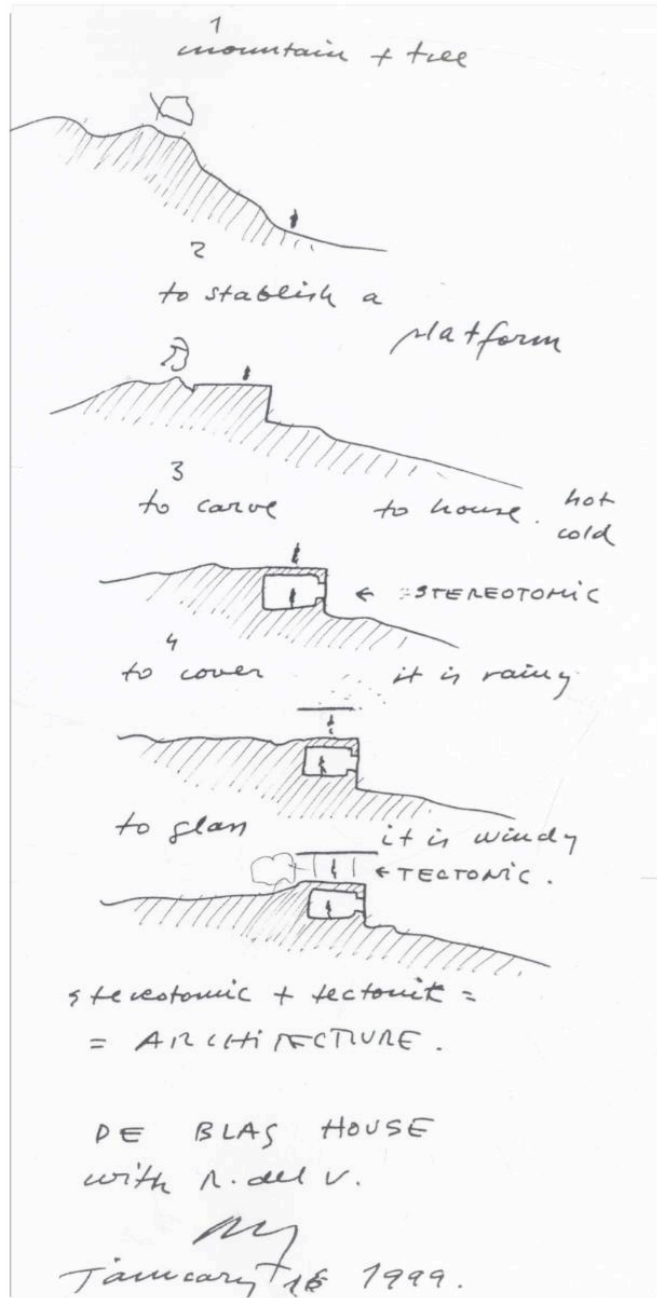 1
mountain + tree
2
to stablish a
platform
3
to carve to house. hot
cold
← STEREOTOMIC
4
to cover it is rainy
to glass it is windy
← TECTONIC.
stereotomic + tectonic =
= ARCHITECTURE.
DE BLAS HOUSE
with R. del V.
January 16 1999.